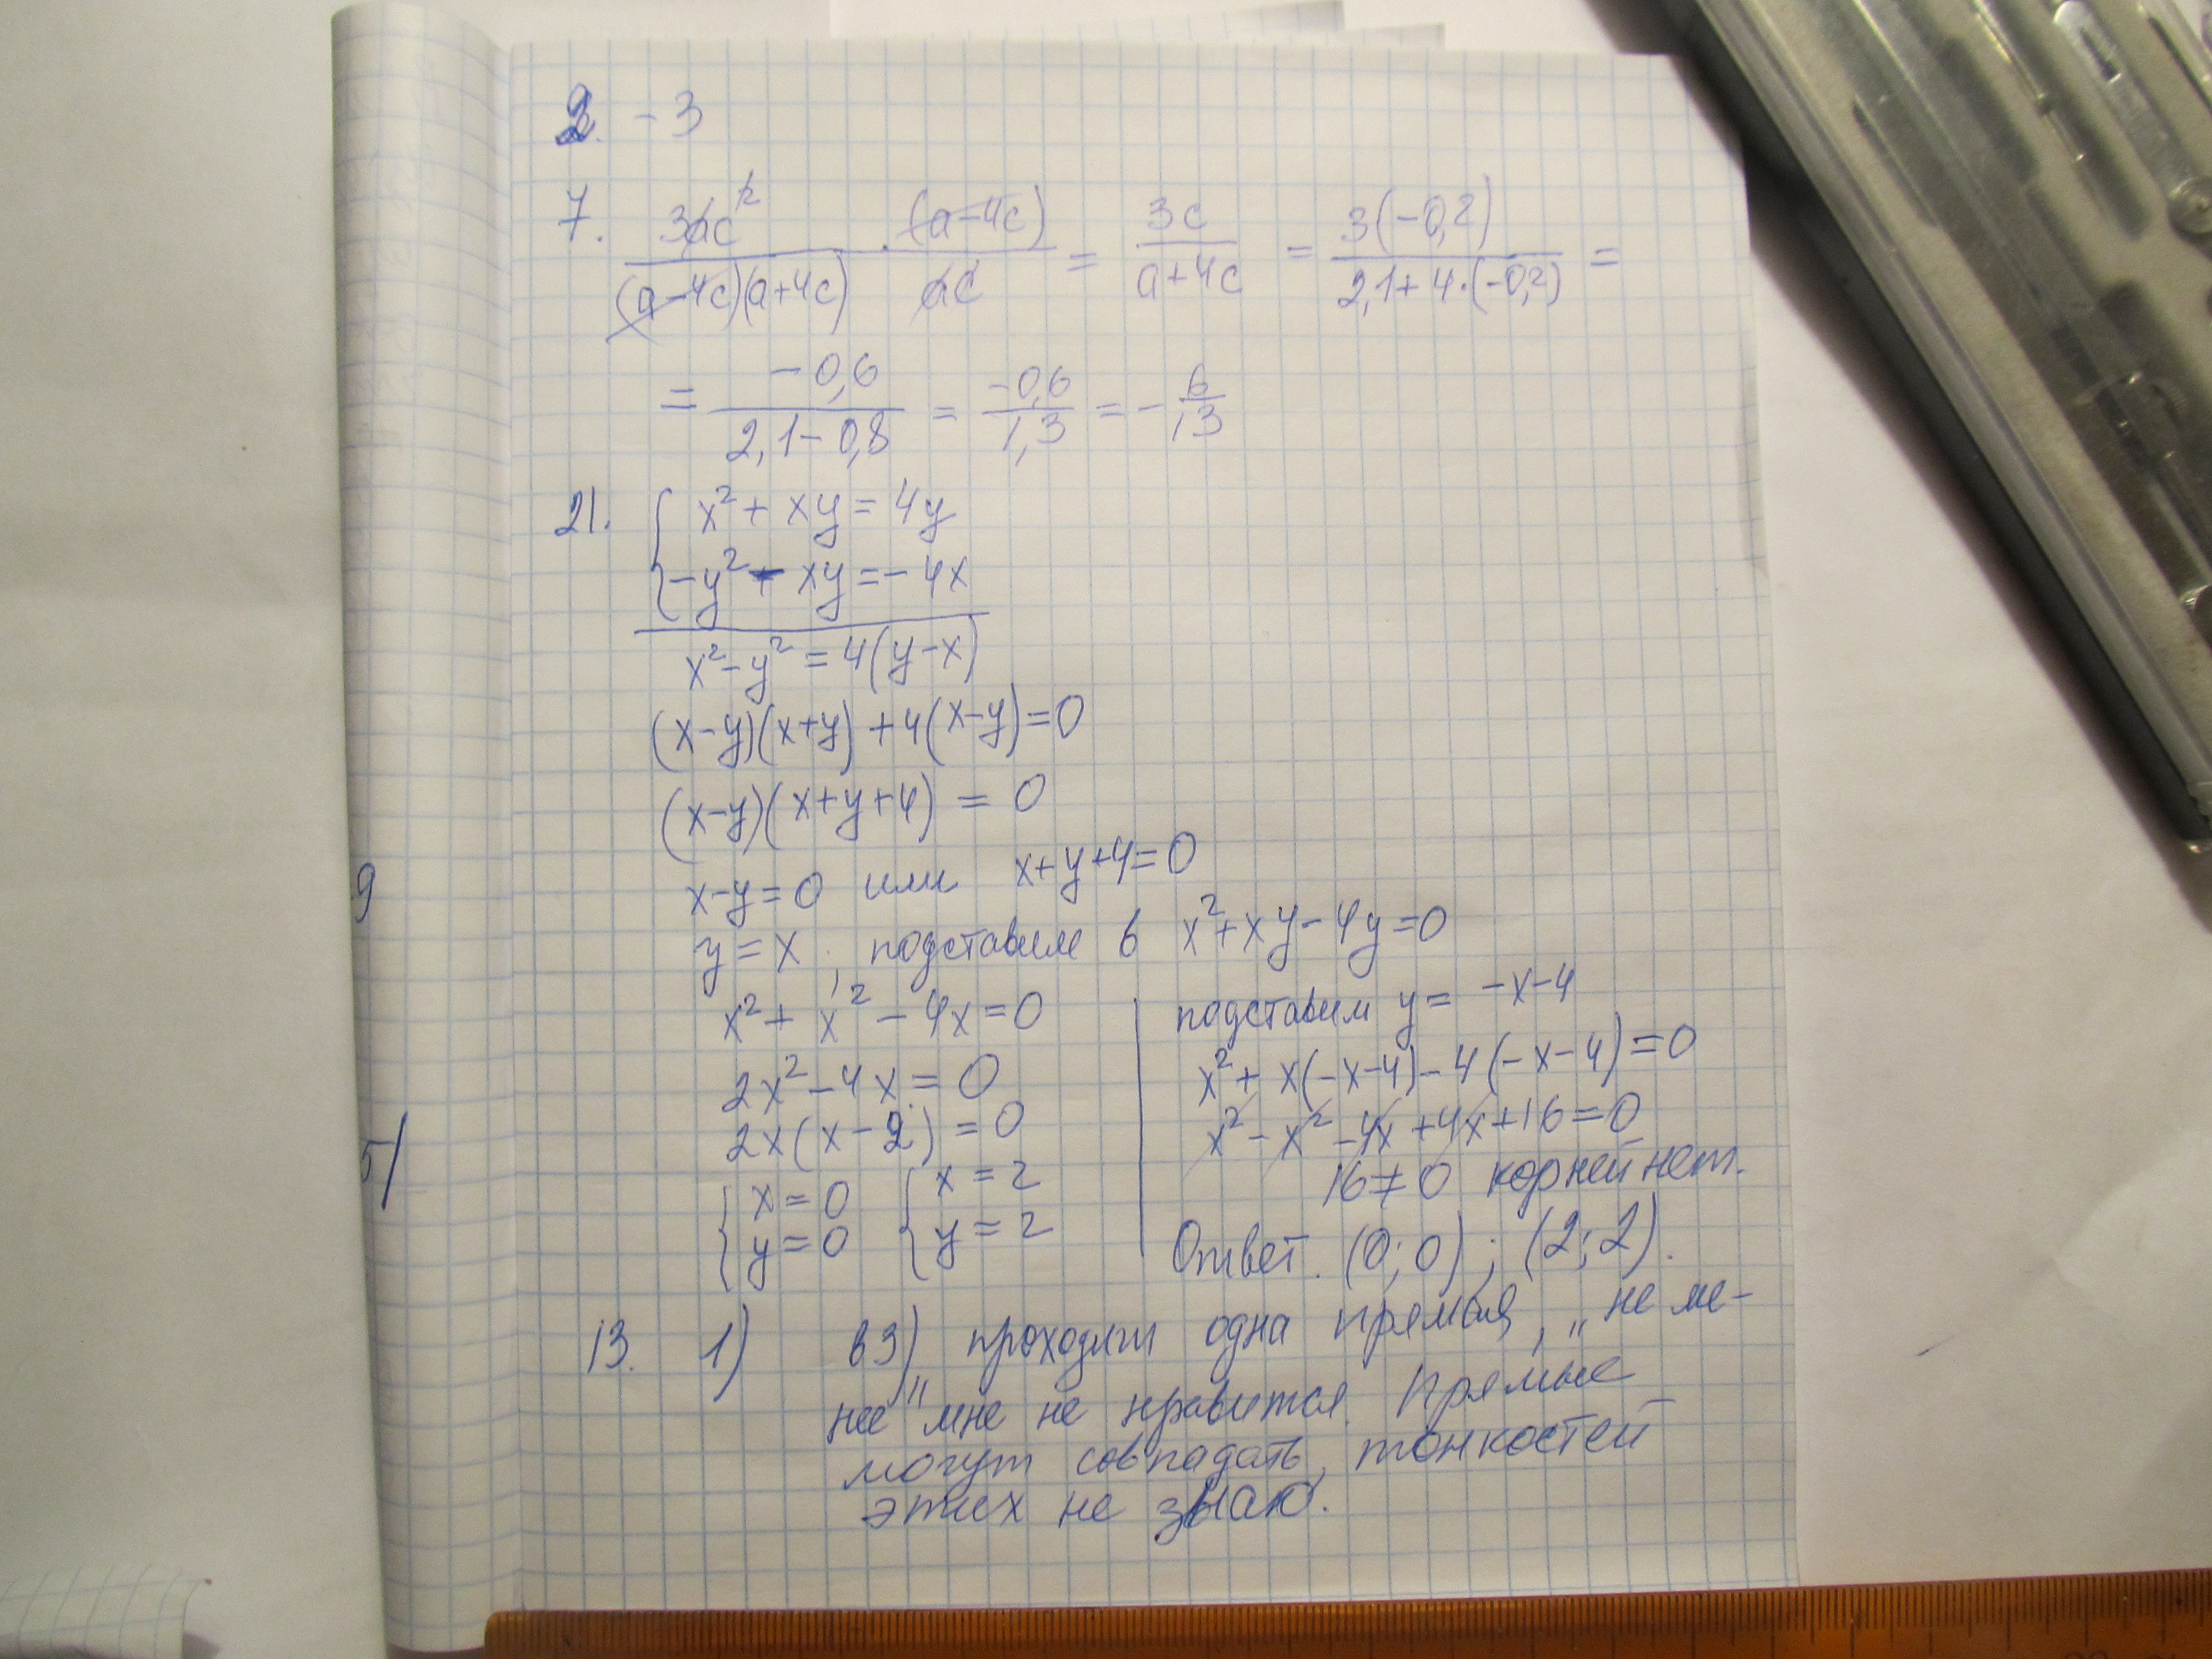 2. -3
7. 3ac² / (a-4c)(a+4c) · (a-4c) / ac = 3c / a+4c = 3(-0,2) / 2,1+4·(-0,2) =
= -0,6 / 2,1-0,8 = -0,6 / 1,3 = - 6 / 13
21. { x² + xy = 4y
-y² - xy = -4x
x² - y² = 4(y-x)
(x-y)(x+y) + 4(x-y) = 0
(x-y)(x+y+4) = 0
x-y=0 или x+y+4=0
y=x, подставим в x²+xy-4y=0
x² + x² - 4x = 0
2x² - 4x = 0
2x(x-2) = 0
{ x=0 { x=2
y=0 y=2
подставим y = -x-4
x² + x(-x-4) - 4(-x-4) = 0
x² - x² - 4x + 4x + 16 = 0
16≠0 корней нет.
Ответ. (0;0); (2;2).
13. 1) в 3) проходит одна прямая, „не ме-
нее" мне не нравится. Прямые
могут совпадать, тонкостей
этих не знаю.
9
5/